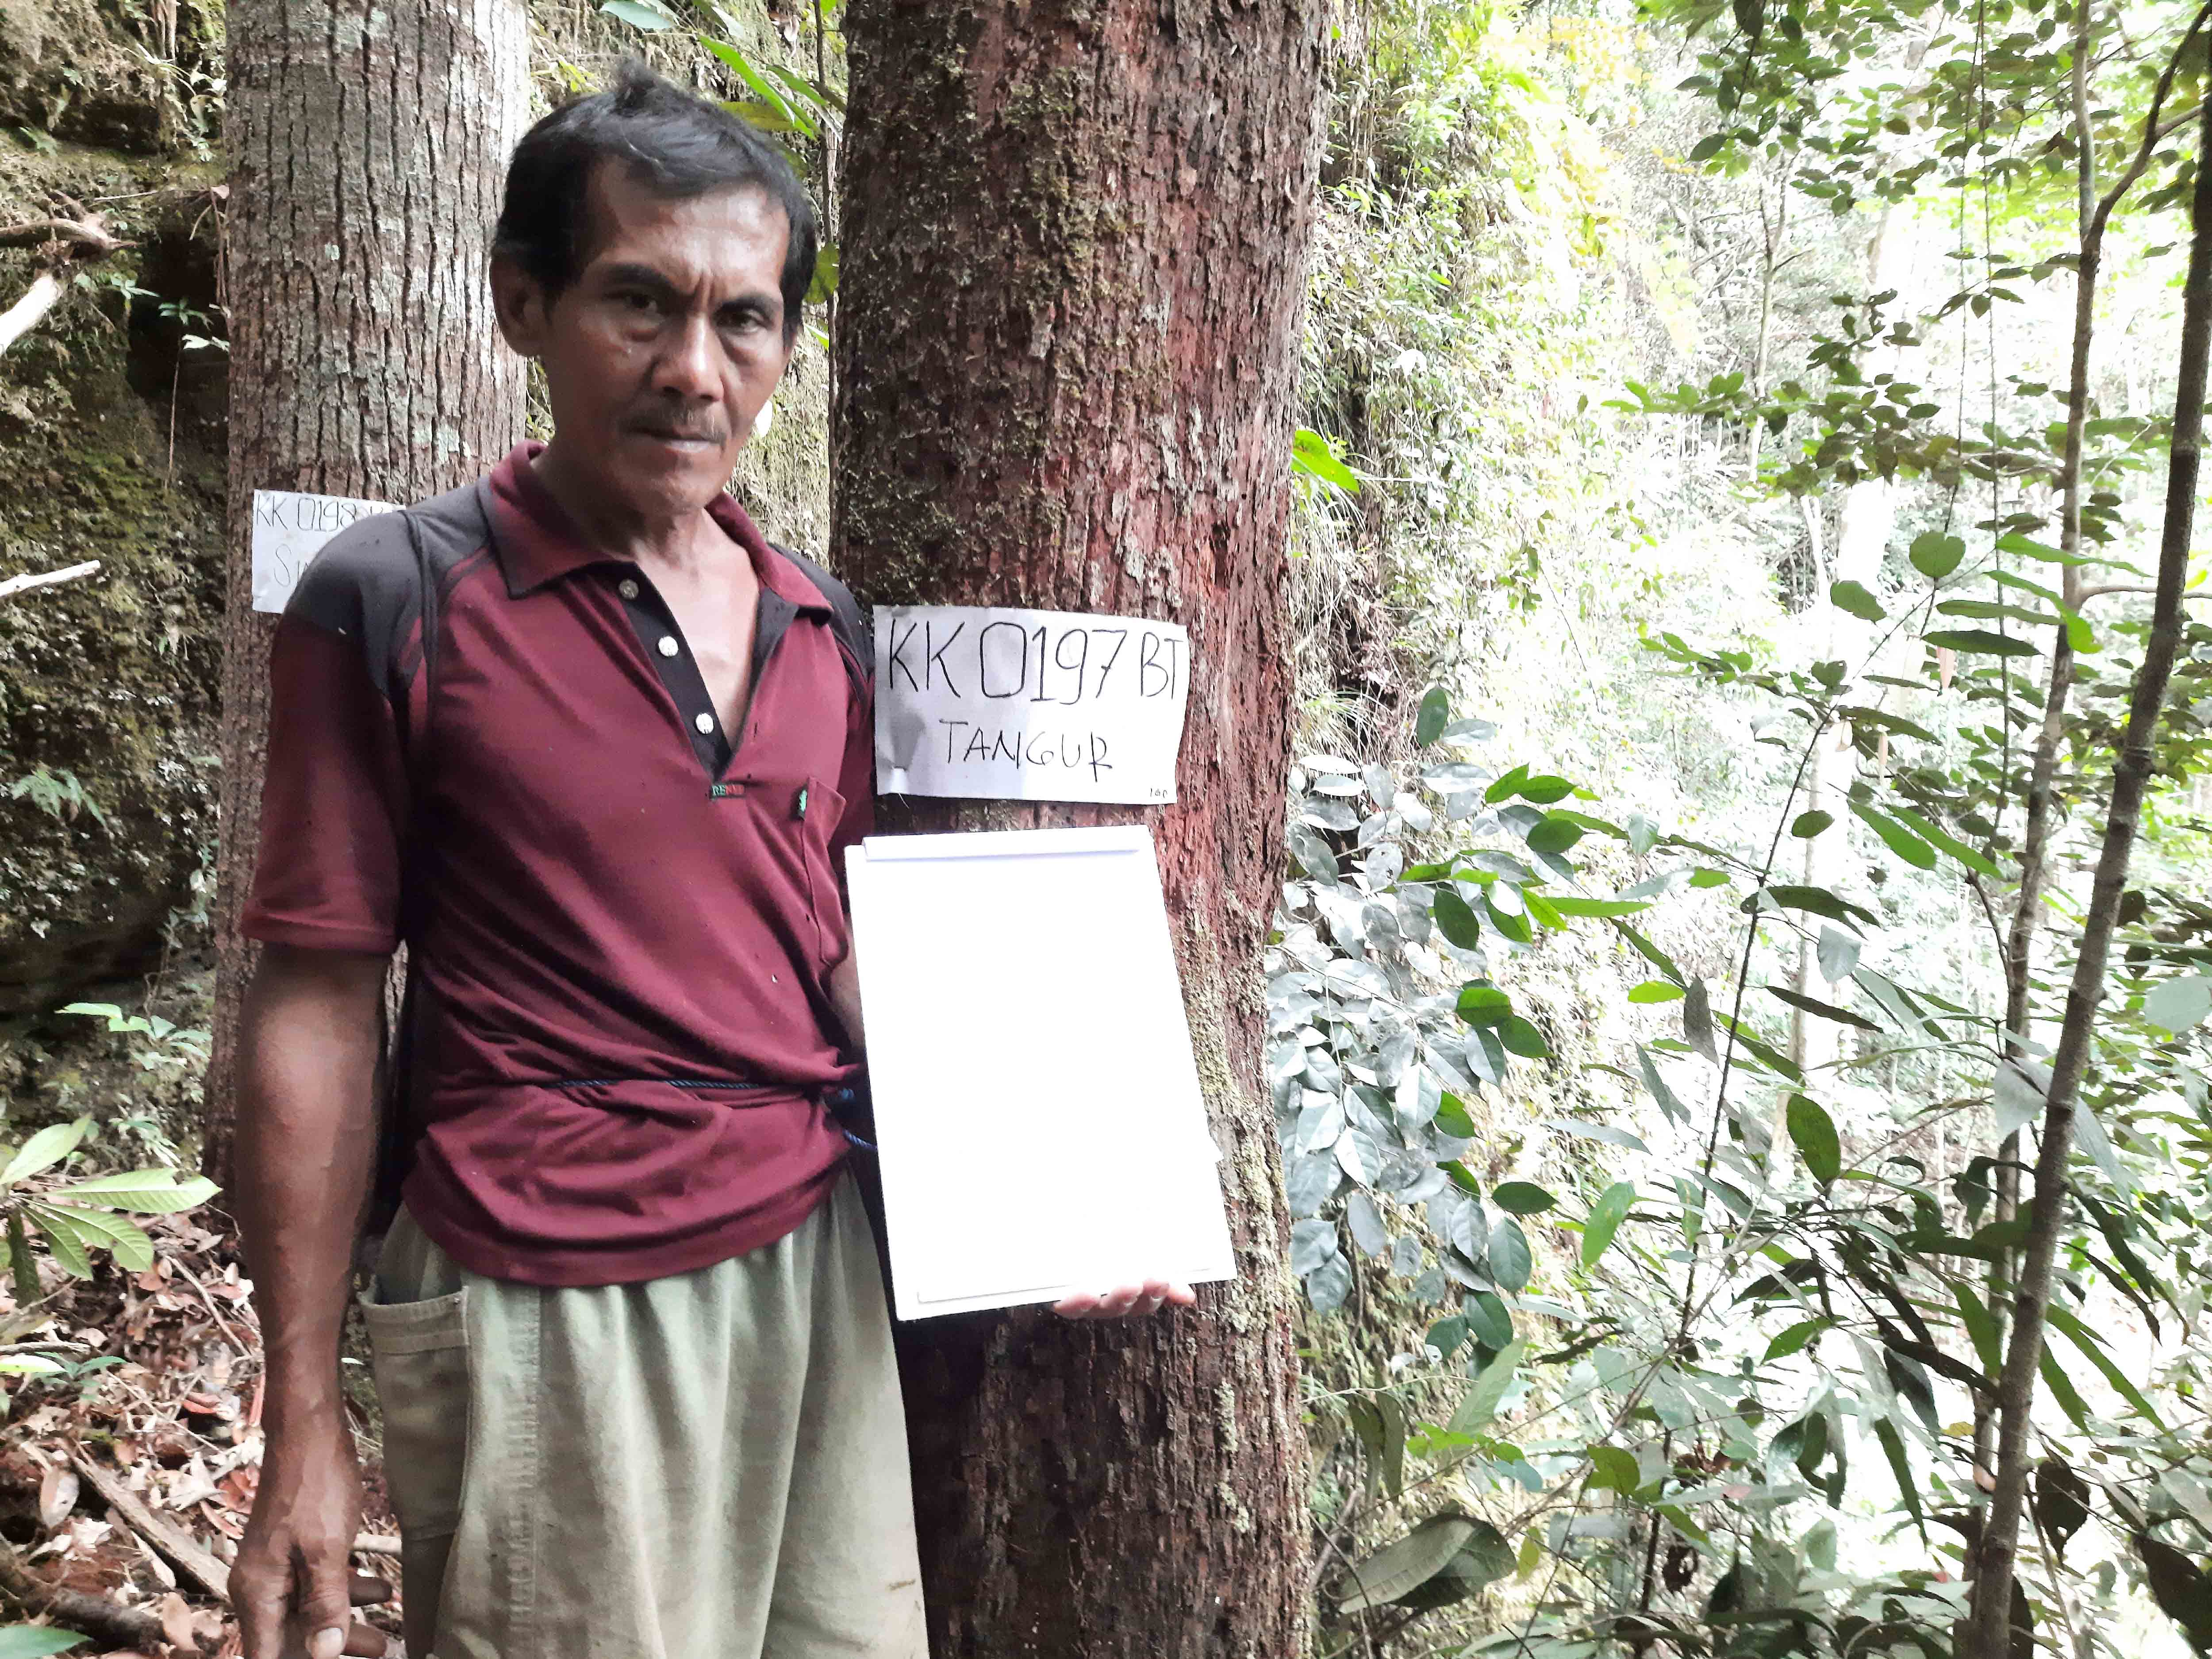 KK 0198
KK 0197 BT
TANGUR